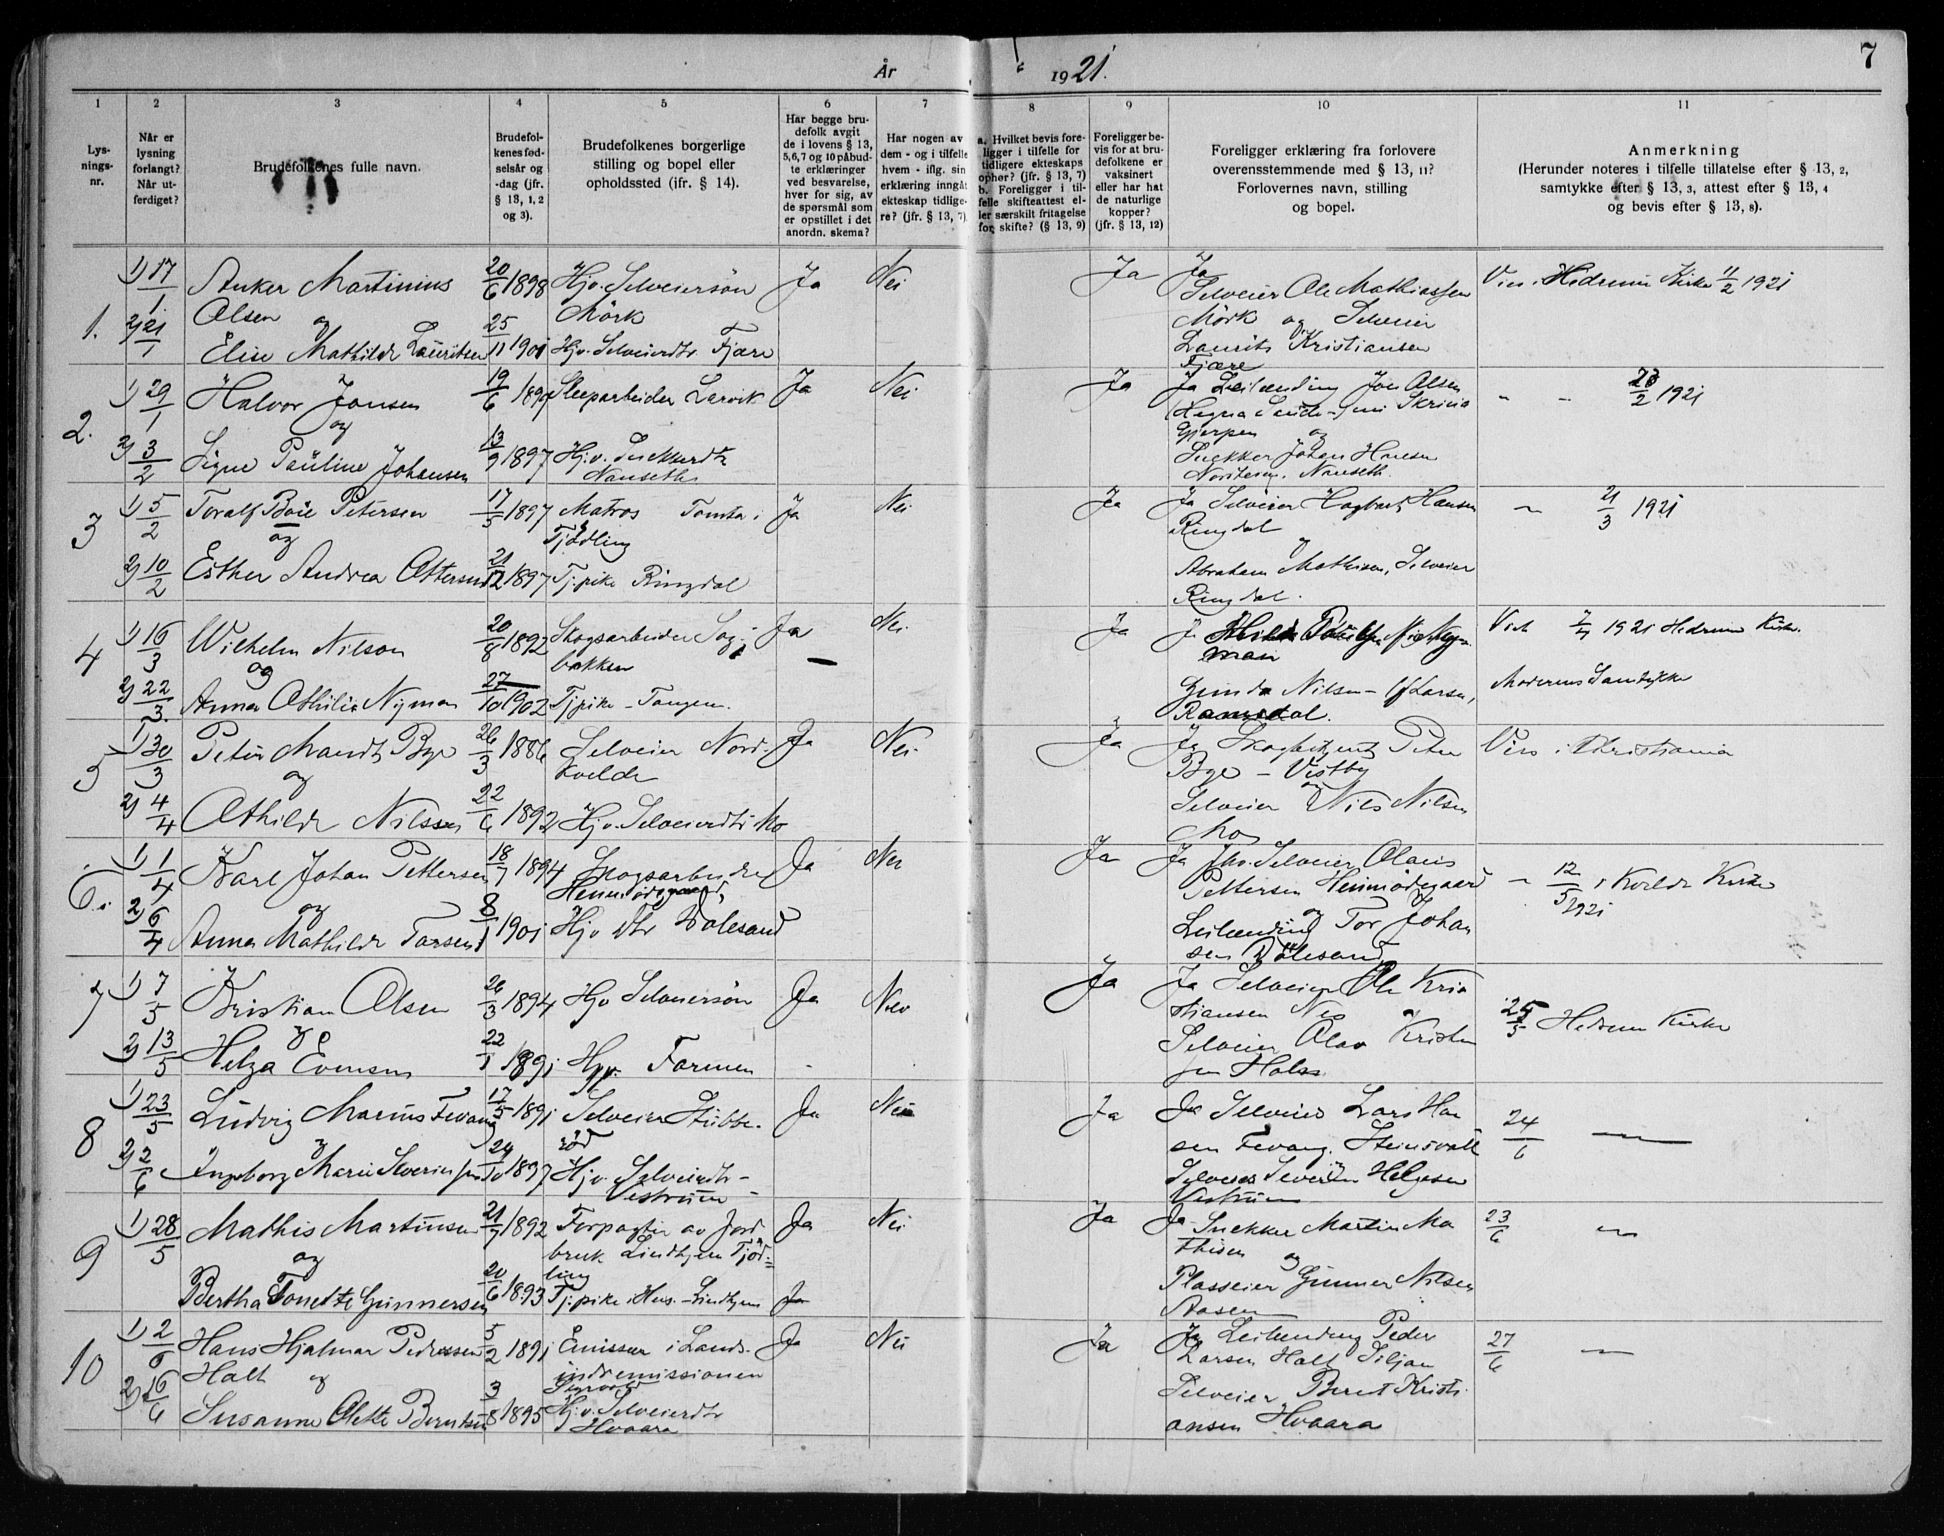 År 1921.
7
1 2 3 4 5 6 7 8 9 10 11
Lys-
nings-
nr.
Når er
lysning
forlangt?
Når ut-
ferdiget?
Brudefolkenes fulle navn.
Brudefol-
kenes fød-
selsår og
-dag (jfr.
§ 13, 1, 2
og 3).
Brudefolkenes borgerlige
stilling og bopel eller
opholdssted (ifr. § 14).
Har begge bru-
defolk avgit
de i lovens § 13,
5,6,7 og 10 påbud-
te erklæringer
ved besvarelse,
hver for sig, av
de spørsmål som
er opstillet i det
anordn. skema?
Har nogen av
dem - og i tilfelle
hvem - iflg. sin
erklæring inngåt
ekteskap tidlige-
re? (jfr. § 13, 7)
a. Hvilket bevis fore-
ligger i tilfelle for
tidligere ekteskaps
ophør? (jfr. § 13, 7)
b. Foreligger i til-
felle skifteattest el-
ler særskilt fritagelse
for skifte? (§ 13, 9)
Foreligger be-
vis for at bru-
defolkene er
vaksinert
eller har hat
de naturlige
kopper?
(jfr. § 13, 12)
Foreligger erklæring fra forlovere
overensstemmende med § 13, 11?
Forlovernes navn, stilling
og bopel.
Anmerkning
(Herunder noteres i tilfelle tillatelse efter § 13, 2,
samtykke efter § 13, 3, attest efter § 13, 4
og bevis efter § 13, 8).
1. 1) 17/1 Anker Martinius 20/6 1898 Hjv. Selveiersøn Ja Nei Ja Ja
Olsen og Mörk
2) 21/1 Elise Mathilde Lauritsen 25/11 1901 Hjv. Selveierdtr. Fjære
Selveier Ole Mathiassen
Mörk og Selveier
Laurits Kristiansen
Fjære
Vies i Hedrum Kirke 11/2 1921
2. 1) 29/1 Halvor Jonsen 19/6 Sleeparbeider Larvik Ja Nei Ja
og
2) 3/2 Signe Pauline Johansen 13/9 1897 Hjv. Snekkerdtr
Nanseth
Ja Leilending Jon Olsen
Gjerpen og
Snekker Johan Hansen
Nanseth.
" - 23/2 1921
3 1) 5/2 Toralf Boie Petersen 17/5 1897 Matros Tomta i Ja Nei Ja
og Tjødling
2) 10/2 Esther Andrea Ottersen 21/12 1897 Tj. pike Ringdal
Ja Selveier Hagbart Hansen
Ringdal
og
Abraham Mathisen, Selveier
Ringdal.
" 21/3 1921
4 1) 16/3 Wilhelm Nilson 20/8 1892 Skogsarbeider Sag- Ja Nei. Ja
og bakken
2) 22/3. Anna Othilie Nyman 27/10 1902 Tjpike - Tangen.
man
Gunda Nilsen -
Ramsdal.
Viet 7/4 1921 Hedrum Kirke.
Moderens Samtykke
5 1) 30/3 Peter Mandt Bye 26/3 1886 Selveier Nord- Ja Nei Ja
og kvelde
2) 4/4 Othilde Nilssen 22/6 1892 Hjv. Selveierdtr Mo
Ja Skogbetjent Peter
Bye - Vestby
og
Selveier Nils Nilsen
Mo
Vies i Kristiania
6. 1) 1/4 Karl Johan Pettersen 18/7 1894 Skogsarbeider Ja Nei Ja
og Heimødegaard
2) 6/4 Anna Mathilde Torsen 8/1 1901 Hjv dtr Dolesand
Ja fhv. Selveier Olaus
Pettersen Heimødegaard
og
Leilending Tor Johan
sen Dölesand
- 12/5 i Kvelde Kirke
1921
7 1) 7/5 Kristian Olsen 26/3 1894 Hjv Selveiersøn Ja Nei Ja
og
2) 13/5 Helga Evensen 22/1 1891 Hjv. Farmen
Ja Selveier Ole Kris
tiansen Nes og
Selveier Olav Kristen
sen Hols
25/5 Hedrum Kirke
8 1) 23/5 Ludvig Marius Fevang 17/5 1891 Selveier Stubbe- Ja Nei Ja
og rød
2) 2/6 Ingeborg Marie Severinsen 24/10 1897 Hjv. Selveierdtr -
Vestrum
Ja Selveier Lars Han
sen Fevang. Steinsvall
Selveier Severin Helgesen
Vestrum
24/6 —
9 1) 28/5 Mathis Martinsen 21/7 1892 Forpagter av Jord- Ja Nei Ja
og bruk Lindhjem Tjød-
ling
Bertha Tonette Gunnersen 20/6 1893 Tj. pike i Hus. - Lindhjem Ja
Ja Snekker Martin Ma
thisen
og
Plasseier Gunner Nilsen
Aasen
23/6 "
10 1) 2/6 Hans Hjalmar Pedersen 5/2 1891 Emissær i Lands- Ja Nei Ja
Holt og indremissionen
2) 16/6 Susanne Olette Berntsen 3/8 1895 Hjv. Selveierdtr
Hvaara
Ja Leilending Peder
Larsen Holt Siljan
Selveier Bernt Kristi-
ansen Hvaara
27/6 —